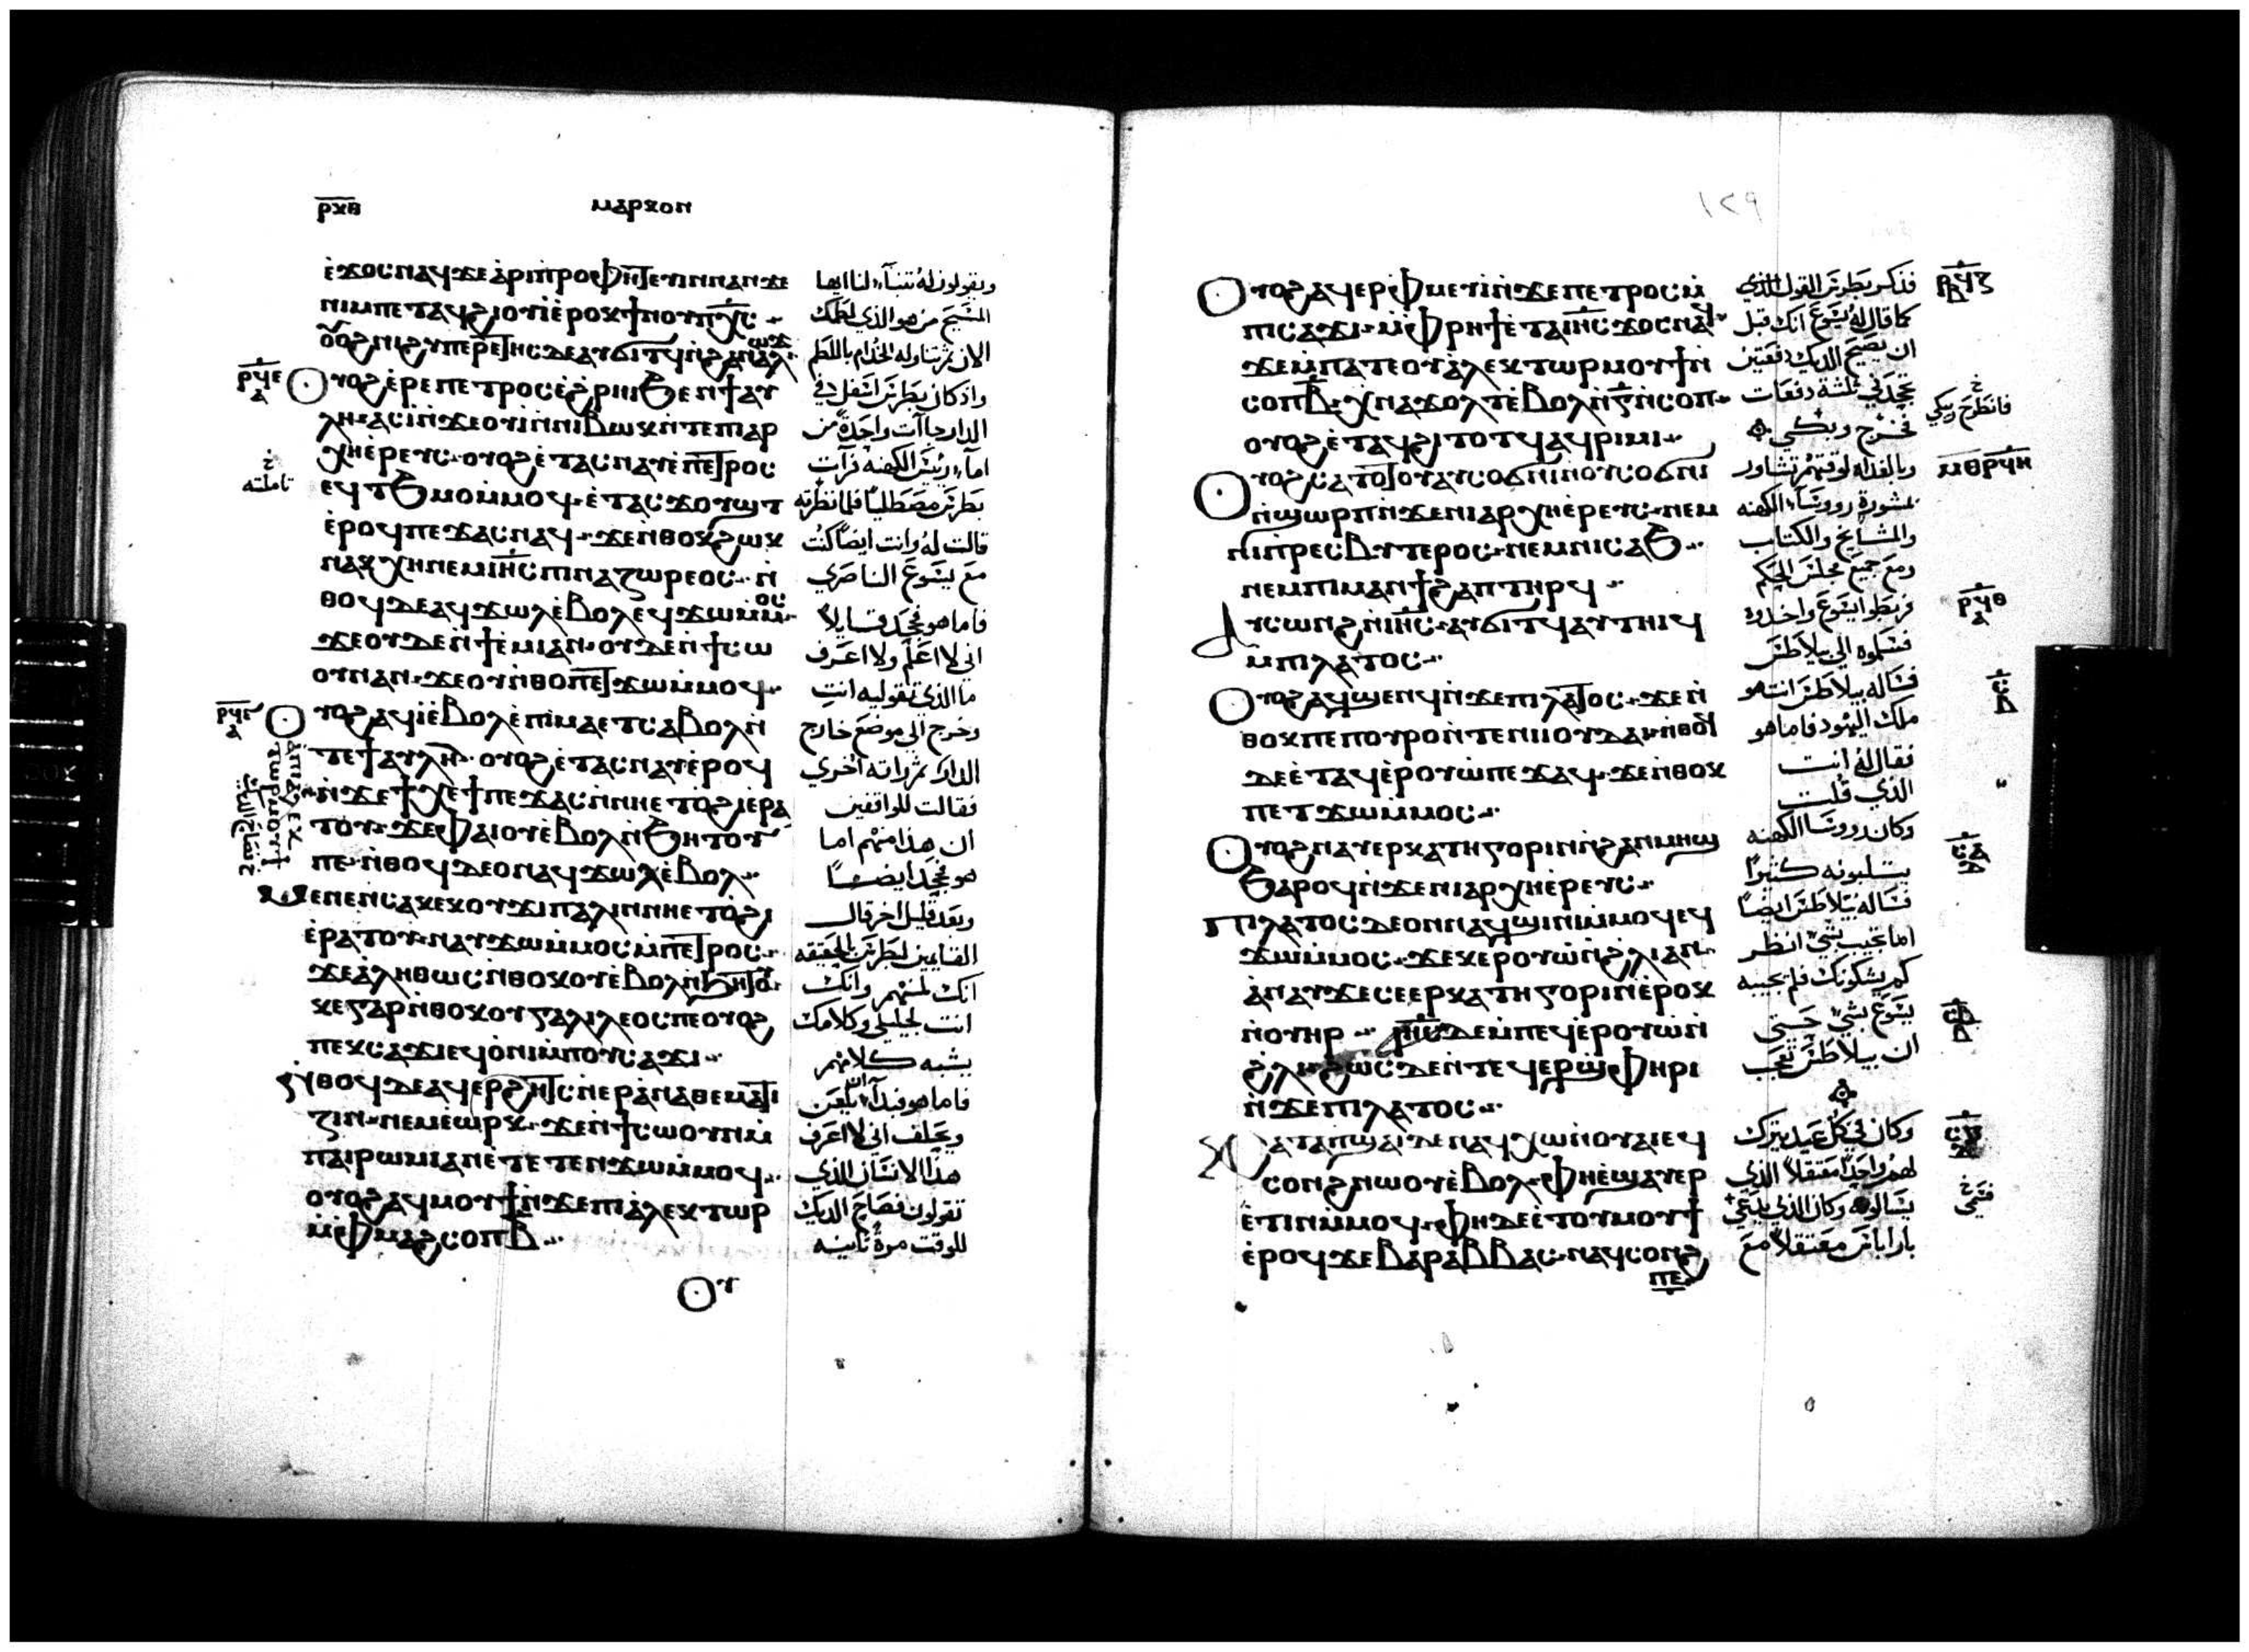 ⲣⲕⲑ
ⲙⲁⲣⲕⲟⲛ
ⲉ̀ϫⲟⲥⲛⲁϥϫⲉⲁ̀ⲣⲓⲡ̀ⲣⲟⲫⲏⲧⲉⲩⲓⲛⲛⲁⲛϫⲉ
ⲛⲓⲙⲡⲉⲧⲁϥϩⲓⲟⲩⲓⲉ̀ⲣⲟⲕϯⲛⲟⲩⲡⲭ̅ⲥ̅
ⲟⲩⲟϩⲛⲓϩⲩⲡⲉⲣⲉⲧⲏⲥⲇⲉⲁⲩϭⲓⲧϥⲛ̀ϩⲁⲛ
ⲣϥⲉ
ⲟⲩⲟϩⲉ̀ⲣⲉⲡⲉⲧⲣⲟⲥⲉ̀ϩ̀ⲣⲏⲓϧⲉⲛϯⲁⲩ
ⲗⲏⲁⲥⲓ̀ⲛ̀ϫⲉⲟⲩⲓ̀ⲛⲛⲓⲃⲱⲕⲓⲛ̀ⲧⲉⲡⲓⲁⲣ
ⲭⲏⲉ̀ⲣⲉⲩⲥ·ⲟⲩⲟϩⲉ̀ⲧⲁⲥⲛⲁⲩⲉ̀ⲡⲉⲧⲣⲟⲥ
ⲉϥⲧϧⲙⲟⲙ̀ⲙⲟϥ·ⲉ̀ⲧⲁⲥϫⲟⲩϣⲧ
ⲉ̀ⲣⲟϥⲡⲉϫⲁⲥⲛⲁϥ·ϫⲉⲛ̀ⲑⲟⲕϩⲱⲕ
ⲛⲁⲕⲭⲏⲛⲉⲙⲓⲏ̅ⲥ̅ⲡⲓⲛⲁⲍⲱⲣⲉⲟⲥ·ⲛ̀
ⲑⲟϥⲇⲉⲁϥϫⲱⲗⲉ̀ⲃⲟⲗⲉϥϫⲱⲙ̀ⲙⲟⲥ
ϫⲉⲟⲩⲇⲉⲛ̀ϯⲉ̀ⲙⲓⲁⲛ·ⲟⲩⲇⲉⲛ̀ϯⲥⲱ
ⲟⲩⲛⲁⲛ·ϫⲉⲟⲩⲛ̀ⲑⲟⲡⲉⲧϫⲱⲙ̀ⲙⲟϥ
ⲣϥⲋ
ⲟⲩⲟϩⲁϥⲓ̀ⲉ̀ⲃⲟⲗⲉ̀ⲡⲓⲙⲁⲉⲧⲥⲁⲃⲟⲗⲛ̀
ⲧⲉϯⲁⲩⲗⲏ·ⲟⲩⲟϩⲉ̀ⲧⲁⲥⲛⲁⲩⲉ̀ⲣⲟϥ
ⲛ̀ϫⲉϯⲭⲉϯⲡⲉϫⲁⲥⲛ̀ⲛⲏⲉⲧⲟϩⲓⲉ̀ⲣⲁ
ⲧⲟⲩ·ϫⲉⲫⲁⲓⲟⲩⲉ̀ⲃⲟⲗⲛ̀ϧⲏⲧⲟⲩ
ⲡⲉ·ⲛ̀ⲑⲟϥⲇⲉⲟⲛⲁϥϫⲱⲗⲉ̀ⲃⲟⲗ
ⲙⲉⲛⲉⲛⲥⲁⲕⲉⲕⲟⲩϫⲓⲡⲁⲗⲓⲛⲛⲏⲉⲧⲟ̀ϩⲓ
ⲉ̀ⲣⲁⲧⲟⲩⲛⲁⲩϫⲱⲙ̀ⲙⲟⲥⲙ̀ⲡⲉⲧⲣⲟⲥ
ϫⲉⲁ̀ⲗⲏⲑⲱⲥⲛ̀ⲑⲟⲕⲟⲩⲉ̀ⲃⲟⲗⲛ̀ϧⲏⲧⲟⲩ
ⲕⲉⲅⲁⲣⲛ̀ⲑⲟⲕⲟⲩⲅⲁⲗⲓⲗⲉⲟⲥⲡⲉⲟⲩⲟϩ
ⲡⲉⲕⲥⲁϫⲓⲉϥⲟ̀ⲛⲓⲙ̀ⲡⲟⲩⲥⲁϫⲓ
ⲛ̀ⲑⲟϥⲇⲉⲁϥⲉⲣϩⲏⲧⲥⲛ̀ⲉⲣⲁ̀ⲛⲁⲑⲉⲙⲁⲧⲓ
ⲍⲓⲛ·ⲛⲉⲙⲉ̀ⲱⲣⲕ·ϫⲉⲛ̀ϯⲥⲱⲟⲩⲛⲙ̀
ⲡⲁⲓⲣⲱⲙⲓⲁⲛⲉ̀ⲧⲉⲧⲉⲛϫⲱⲙ̀ⲙⲟϥ
ⲟⲩⲟϩⲁϥⲙⲟⲩϯⲛ̀ϫⲉⲡⲓⲁ̀ⲗⲉⲕⲧⲱⲣ
ⲙ̀ⲫⲙⲁϩⲥⲟⲡⲃ̅
ⲟⲩ
ⲁ̀ⲡⲓⲁ̀ⲗⲉⲕ
ⲧⲱⲣⲙⲟⲩϯ
تاملته
ويقولون له تنبآء لنا ايها
المسيح من هو الذي لطمك
الان ثم تناوله الخدام باللطم
واذ كان بطرس اسفل في
الدار جاآت واحدة من
امآء رييس الكهنه فرآت
بطرس مصطليًا فلما نظرته
قالت له وانت ايضًا كنت
مع يسوع الناصري
فاما هو فجحد قايلاً
اني لا اعلم ولا اعرف
ما الذي تقوليه انتِ
وخرج الي موضع خارج
الدار ثم راته اخري
فقالت للواقفين
ان هذا منهم اما
هو فجحد ايضًا
وبعد قليل اخر قال
القايمين لبطرس بالحقيقه
انك لمنهم وانك
انت لجليلي وكلامك
يشبه كلامهم
فاما هو فبدآ يلعن
ويحلف اني لا اعرف
هذا الانسان الذي
تقولون فصاح الديك
للوقت مرة ثانيه
١٢٩
ⲟⲩⲟϩⲁϥⲉⲣⲫⲙⲉⲩⲓ̀ⲛ̀ϫⲉⲡⲉⲧⲣⲟⲥⲙ̀
ⲡⲓⲥⲁϫⲓ·ⲙ̀ⲫⲣⲏϯⲉ̀ⲧⲁⲓⲏ̅ⲥ̅ϫⲟⲥⲛⲁϥ
ϫⲉⲙ̀ⲡⲁⲧⲉⲟⲩⲁ̀ⲗⲉⲕⲧⲱⲣⲙⲟⲩϯⲛ̀
ⲥⲟⲡⲃ̅·ⲭⲛⲁϫⲟⲗⲧⲉ̀ⲃⲟⲗⲛ̀ⲅ̅ⲛ̀ⲥⲟⲡ
ⲟⲩⲟϩⲉ̀ⲧⲁϥϩⲓⲧⲟⲧϥⲁϥⲣⲓⲙⲓ
ⲟⲩⲟϩⲥⲁⲧⲟⲧⲟⲩⲁⲩⲥⲟϭⲛⲓⲛⲟⲩⲥⲟϭⲛⲓ
ⲛ̀ϣⲱⲣⲡⲛ̀ϫⲉⲛⲓⲁⲣⲭⲏⲉ̀ⲣⲉⲩⲥ·ⲛⲉⲙ
ⲛⲓⲡⲣⲉⲥⲃⲩⲧⲉⲣⲟⲥ·ⲛⲉⲙⲛⲓⲥⲁϧ
ⲛⲉⲙⲡⲓⲙⲁⲛϯϩⲁⲡⲧⲏⲣϥ
ⲁⲩⲥⲱⲛϩⲛ̀ⲓⲏ̅ⲥ̅·ⲁⲩϭⲓⲧϥⲁⲩⲧⲏⲓϥ
ⲙ̀ⲡⲓⲗⲁⲧⲟⲥ
ⲟⲩⲟϩⲁϥϣⲉⲛϥⲛ̀ϫⲉⲡⲓⲗⲁⲧⲟⲥ·ϫⲉⲛ̀
ⲑⲟⲕⲡⲉⲡⲟⲩⲣⲟⲛ̀ⲧⲉⲛⲓⲓⲟⲩⲇⲁⲓ·ⲛ̀ⲑⲟϥ
ⲇⲉⲉ̀ⲧⲁϥⲉ̀ⲣⲟⲩⲱ̀ⲡⲉϫⲁϥ·ϫⲉⲛ̀ⲑⲟⲕ
ⲡⲉⲧϫⲱⲙ̀ⲙⲟⲥ
ⲟⲩⲟϩⲛⲁⲩⲉⲣⲕⲁⲧⲏⲅⲟⲣⲓⲛⲛ̀ϩⲁⲛⲙⲏϣ
ϧⲁⲣⲟϥⲛ̀ϫⲉⲛⲓⲁⲣⲭⲏⲉ̀ⲣⲉⲩⲥ
ⲡⲓⲗⲁⲧⲟⲥⲇⲉⲟⲛⲛⲁϥϣⲓⲛⲓⲙ̀ⲙⲟϥⲉϥ
ϫⲱⲙ̀ⲙⲟⲥ·ϫⲉⲕⲉⲣⲟⲩⲱ̀ⲛ̀ϩ̀ⲗⲓⲁⲛ
ⲁ̀ⲛⲁⲩϫⲉⲥⲉⲉⲣⲕⲁⲧⲏⲅⲟⲣⲓⲛⲉ̀ⲣⲟⲕ
ⲛ̀ⲟⲩⲏⲣ ⲓⲏ̅ⲥ̅ⲇⲉⲙ̀ⲡⲉϥⲉ̀ⲣⲟⲩⲱ̀ⲛ̀
ϩ̀ⲗⲓϩⲱⲥⲇⲉⲛ̀ⲧⲉϥⲉⲣϣ̀ⲫⲏⲣⲓ
ⲛ̀ϫⲉⲡⲓⲗⲁⲧⲟⲥ
ⲕⲁⲧⲁⲡ̀ϣⲁⲓⲇⲉⲛⲁϥⲭⲱⲛ̀ⲟⲩⲁⲓⲉϥ
ⲥⲟⲛϩⲛⲱⲟⲩⲉ̀ⲃⲟⲗ·ⲫⲏⲉ̀ϣⲁⲩⲉⲣ
ⲉ̀ⲧⲓⲛⲙ̀ⲙⲟϥ·ⲫⲏⲇⲉⲉ̀ⲧⲟⲩⲙⲟⲩϯ
ⲉ̀ⲣⲟϥϫⲉⲃⲁⲣⲁⲃⲃⲁⲥ·ⲛⲁϥⲥⲟⲛϩ
ⲡⲉ
فذكر بطرس القول الذي
كما قال له يسوع انك قبل
ان يصيح الديك دفعتين
تجحدني ثلثة دفعات
فخرج وبكي
وبالغداه لوقتهم تشاور
بمشورة رووسآء الكهنه
والمشايخ والكتاب
ومع جميع مجلس الحكم
فربطوا ايسوع واخذوه
فسلموه الي بيلاطس
فساله بيلاطس انت هو
ملك اليهود فاما هو
فقال له انت
الذي قلت
وكان رووسا الكهنه
يثلبونه كثيرًا
فساله بيلاطس ايضًا
اما تجيب بشي انظر
كم يشكونك فلم يجيبه
يسوع بشي حتي
ان بيلاطس تعجب
وكان في كل عيد يترك
لهم واحدًا معتقلاً الذي
يسالوه وكان الذي يدعي
باراباس معتقلاً مع
ⲣϥⲍ
فانطرح يبكي
ⲙⲑⲣϥⲏ
ⲣϥⲑ